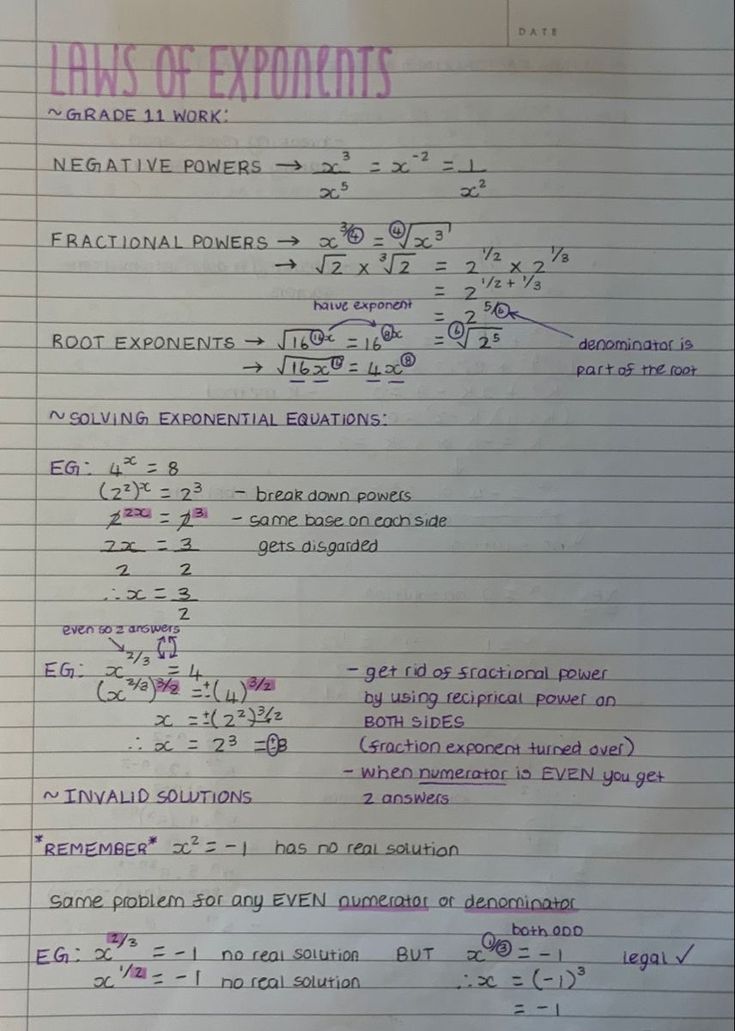 DATE
LAWS OF EXPONENTS
~GRADE 11 WORK:
NEGATIVE POWERS → x³/x⁵ = x⁻² = 1/x²
FRACTIONAL POWERS → x^(3/4) = ⁴√x³
→ √2 × ³√2 = 2^(1/2) × 2^(1/3)
= 2^(1/2 + 1/3)
halve exponent
= 2^(5/6)
ROOT EXPONENTS → √16^(16x) = 16^(8x)
= ⁶√2⁵
denominator is
part of the root
→ √16x^(16) = 4x^(8)
~SOLVING EXPONENTIAL EQUATIONS:
EG: 4^x = 8
(2²)^x = 2³ - break down powers
2^(2x) = 2³ - same base on each side
2x/2 = 3/2 gets disgarded
∴x = 3/2
even so 2 answers
EG: x^(2/3) = 4 - get rid of fractional power
(x^(2/3))^(3/2) = ±(4)^(3/2) by using reciprical power on
x = ±(2²)^(3/2) BOTH SIDES
∴ x = 2³ = ±8 (fraction exponent turned over)
- when numerator is EVEN you get
~ INVALID SOLUTIONS 2 answers
*REMEMBER* x² = -1 has no real solution
same problem for any EVEN numerator or denominator
both ODD
EG: x^(2/3) = -1 no real solution BUT x^(1/3) = -1 legal ✓
x^(1/2) = -1 no real solution ∴x = (-1)³
= -1